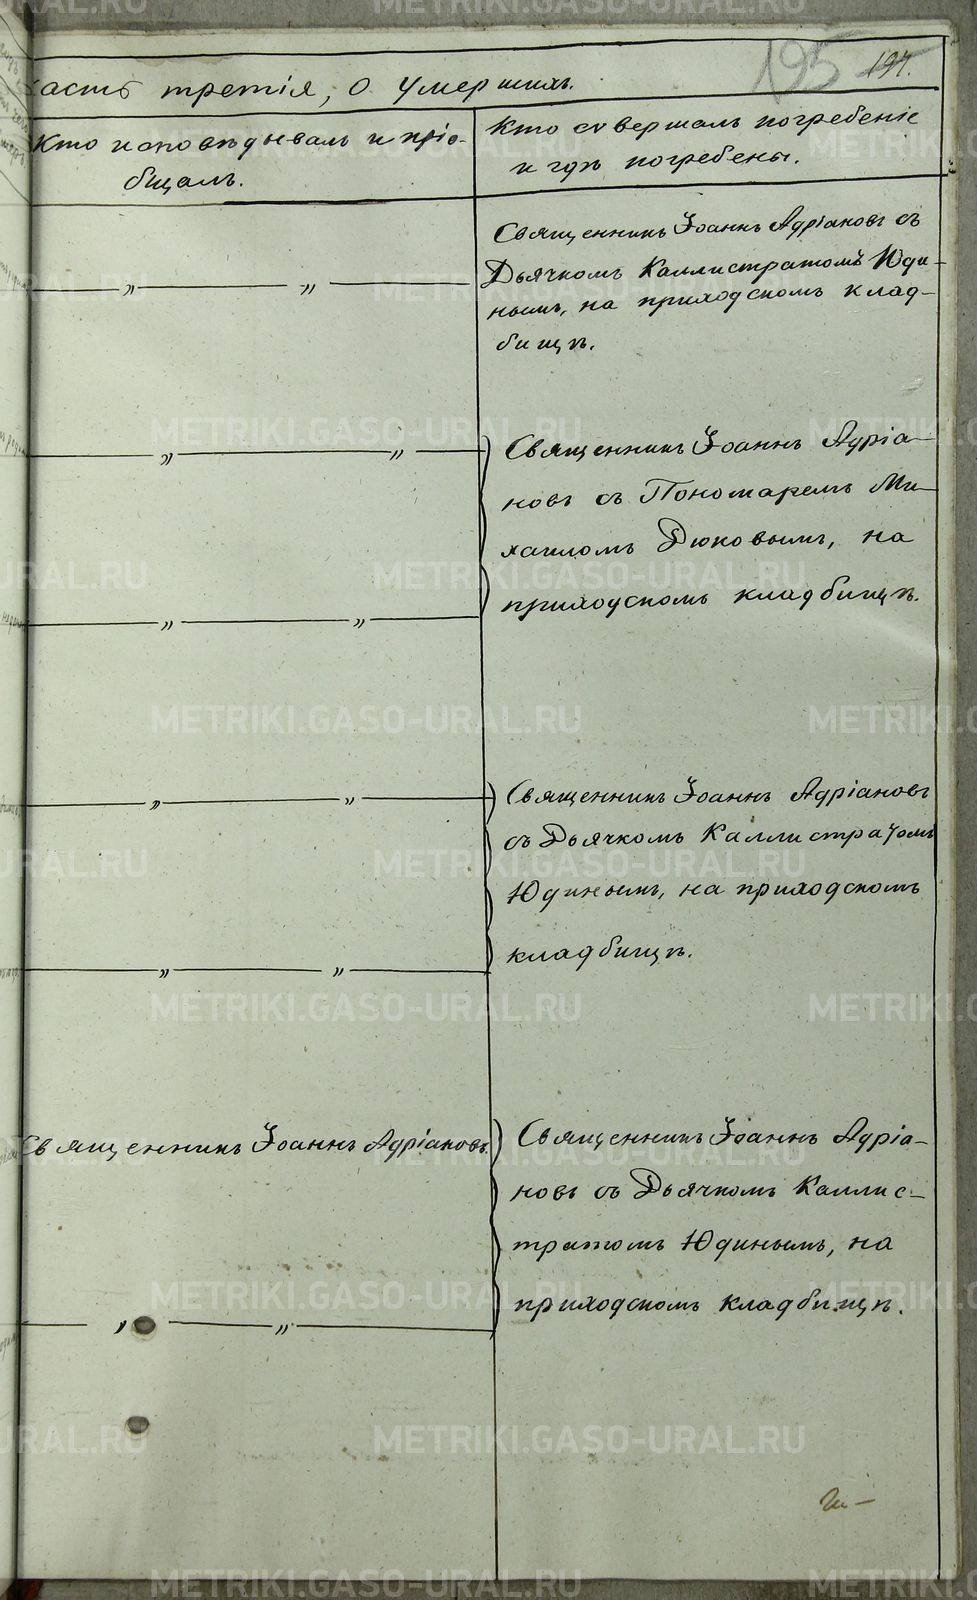 195 197.
Часть третія, о умершихъ.
Кто исповѣдывалъ и пріо-
бщалъ.
Кто совершалъ погребеніе
и гдѣ погребены.
Священникъ Іоаннъ Адріановъ съ
Дьячкомъ Каллистратомъ Юди-
нымъ, на приходскомъ клад-
бищѣ.
„ „
Священникъ Іоаннъ Адріа-
новъ съ Пономаремъ Ми-
хаиломъ Дюковымъ, на
приходскомъ кладбищѣ.
„ „
„ „
Священникъ Іоаннъ Адріановъ
съ Дьячкомъ Каллистратомъ
Юдинымъ, на приходскомъ
кладбищѣ.
„ „
„ „
Священникъ Іоаннъ Адріановъ.
Священникъ Іоаннъ Адріа-
новъ съ Дьячкомъ Каллис-
тратомъ Юдинымъ, на
приходскомъ кладбищѣ.
„ „
METRIKI.GASO-URAL.RU